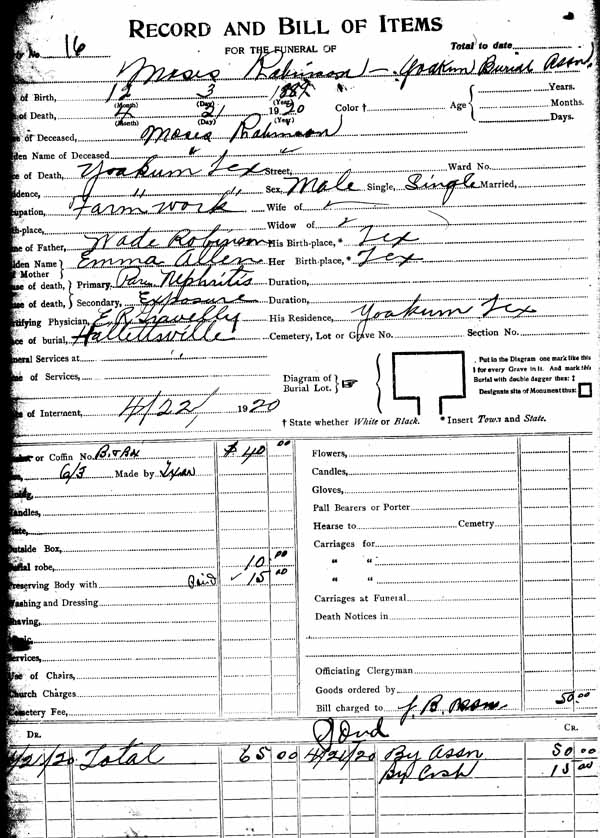 RECORD AND BILL OF ITEMS
No. 16 FOR THE FUNERAL OF Total to date
Moses Robinson - (Yoakum Burial Assn)
of Birth, 12 3 1889 Years.
(Month) (Day) (Year) Color † Age Months.
of Death, 4 21 1920 Days.
(Month) (Day) (Year)
of Deceased, Moses Robinson
den Name of Deceased " "
ce of Death, Yoakum Tex Street, Ward No.
idence, " " Sex, Male Single, Single Married,
upation, Farm work Wife of
th-place, Widow of
me of Father, Wade Robinson His Birth-place, * Tex
den Name of Mother Emma Allen Her Birth-place, * Tex
se of death, Primary, Nephritis Duration,
se of death, Secondary, Exposure Duration,
tifying Physician, E. R. His Residence, Yoakum Tex
ce of burial, Hallettsville Cemetery, Lot or Grave No. Section No.
neral Services at "
e of Services,
Diagram of Burial Lot.
. Put in the Diagram one mark like this
I for every Grave in it. And mark this
Burial with double dagger thus: ‡
Designate site of Monument thus:
e of Interment, 4/22/ 1920
† State whether White or Black. * Insert Town and State.
or Coffin No. B. & Box $ 40 00 Flowers,
6/3 Made by Candles,
Gloves,
andles, Pall Bearers or Porter
ate, Hearse to Cemetry
utside Box, Carriages for
rial robe, 10 00 " "
reserving Body with Paid 15 00 " "
ashing and Dressing Carriages at Funeral
having, Death Notices in
ervices,
se of Chairs, Officiating Clergyman
hurch Charges Goods ordered by
emetery Fee, Bill charged to Assn 50 00
DR. CR.
4/21/20 Total 65 00 4/21/20 By Assn 50 00
By Cash 15 00